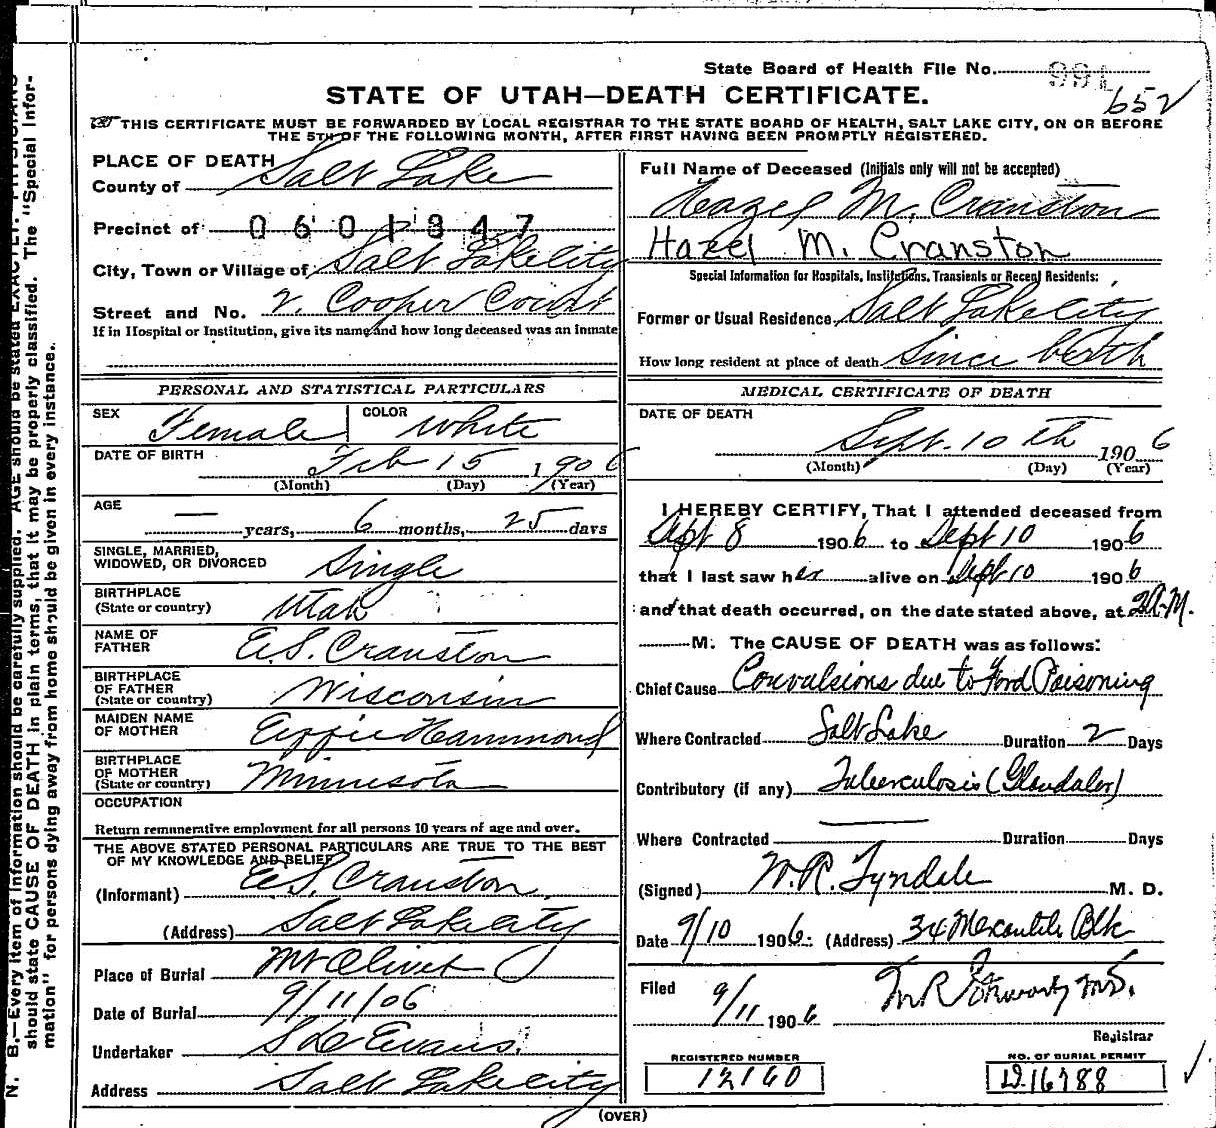 State Board of Health File No. 991
652
STATE OF UTAH—DEATH CERTIFICATE.
THIS CERTIFICATE MUST BE FORWARDED BY LOCAL REGISTRAR TO THE STATE BOARD OF HEALTH, SALT LAKE CITY, ON OR BEFORE
THE 5TH OF THE FOLLOWING MONTH, AFTER FIRST HAVING BEEN PROMPTLY REGISTERED.
PLACE OF DEATH
County of Salt Lake
Precinct of 0601847
City, Town or Village of Salt Lake City
Street and No. 2. Cooper Court
If in Hospital or Institution, give its name and how long deceased was an inmate
Full Name of Deceased (Initials only will not be accepted)
Hazel M. Cranston
Hazel M. Cranston
Special Information for Hospitals, Institutions, Transients or Recent Residents:
Former or Usual Residence Salt Lake City
How long resident at place of death Since birth
PERSONAL AND STATISTICAL PARTICULARS
SEX Female COLOR White
DATE OF BIRTH Feb 15 1906
(Month) (Day) (Year)
AGE — years, 6 months, 25 days
SINGLE, MARRIED,
WIDOWED, OR DIVORCED Single
BIRTHPLACE
(State or country) Utah
NAME OF
FATHER E.S. Cranston
BIRTHPLACE
OF FATHER
(State or country) Wisconsin
MAIDEN NAME
OF MOTHER Effie Hammond
BIRTHPLACE
OF MOTHER
(State or country) Minnesota
OCCUPATION
Return remunerative employment for all persons 10 years of age and over.
THE ABOVE STATED PERSONAL PARTICULARS ARE TRUE TO THE BEST
OF MY KNOWLEDGE AND BELIEF
(Informant) E.S. Cranston
(Address) Salt Lake City
Place of Burial Mt Olivet
Date of Burial 9/11/06
Undertaker Evans.
Address Salt Lake City
MEDICAL CERTIFICATE OF DEATH
DATE OF DEATH
Sept. 10th 1906
(Month) (Day) (Year)
I HEREBY CERTIFY, That I attended deceased from
Sept 8 1906 to Sept 10 1906
that I last saw her alive on Sept 10 1906
and that death occurred, on the date stated above, at 2A.M.
M. The CAUSE OF DEATH was as follows:
Chief Cause Convulsions due to Food Poisoning
Where Contracted Salt Lake Duration 2 Days
Contributory (if any) Tuberculosis (Glandular)
Where Contracted — Duration Days
(Signed) W.R. Tyndale M. D.
Date 9/10 1906. (Address) 34 Mercantile Blk
Filed 9/11 1906 M.D.
Registrar
REGISTERED NUMBER
12160
NO. OF BURIAL PERMIT
D.16788
(OVER)
N. B.—Every item of information should be carefully supplied. AGE should be stated EXACTLY. PHYSICIANS
should state CAUSE OF DEATH in plain terms, that it may be properly classified. The "Special Infor-
mation" for persons dying away from home should be given in every instance.